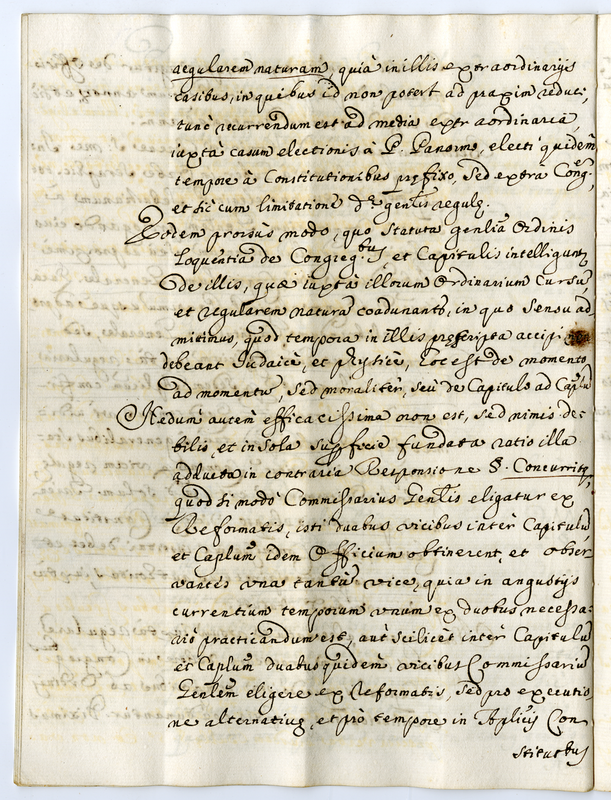 regularem naturam, quià in illis extraordinarijs
casibus, in quibus id non potest ad praxim reduci,
tunc recurrendum est ad media extraordinaria,
iuxtà casum electionis à P. Panormo, electi quidem
tempore à Constitutionibus prefixo, sed extra Cong.em
et sic cum limitatione d.ę gen̄lis regulę.
Eodem prorsus modo, quo Statuta gen̄lia Ordinis
Loquentia de Congreg.bus et Capitulis intelligunt.
de illis, quæ iuxtà illorum Ordinarium Cursū,
et regularem naturā coadunant., in quo Sensu ad-
mittimus, quod tempora in illis prescripta accipi
debeant Iudaicè, et phỹsicè, hoc est de momento
ad momentū, sed moraliter, seù de Capitulo ad Cap̄lū
Nedum autem efficacissima non est, sed nimis de-
bilis, et in sola superficie fundata ratio illa
adducta in contraria Responsione §. Concurrit,
quod si modò Commissarius Gen̄lis eligatur ex
Reformatis, isti duabus vicibus inter Capitulū
et Cap̄lum idem Officium obtinerent, et obser-
vantes vna tantū vice, quia in angustijs
currentium temporum vnum ex duobus necessa-
riò practicandum est, aut scilicet inter Capitulū
et Cap̄lum duabus quidem vicibus Commissariū
Gen̄lem eligere ex Reformatis, sed pro executio-
ne alternatiuę, et prò tempore in Ap̄licis Con-
stitutbus